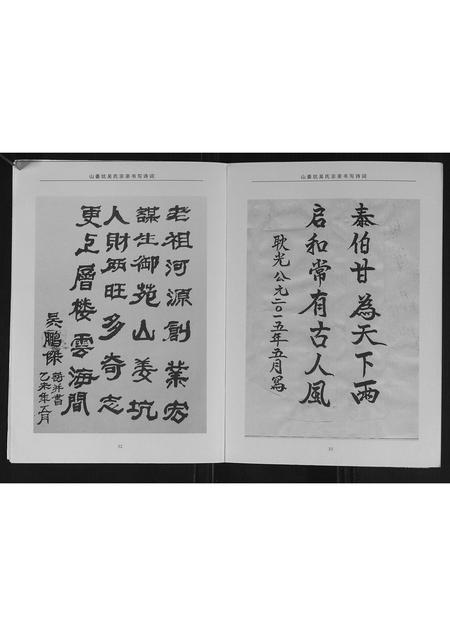 山姜坑吴氏宗亲书写诗词
老祖河源創業宏
謀生御苑山姜坑
人財两旺多奇志
更上層楼雲海間
吴鵬傑
詩并書
乙未年五月
32
山姜坑吴氏宗亲书写诗词
泰伯甘為天下雨
启和常有古人風
耿光公元二〇一五年五月寫
33